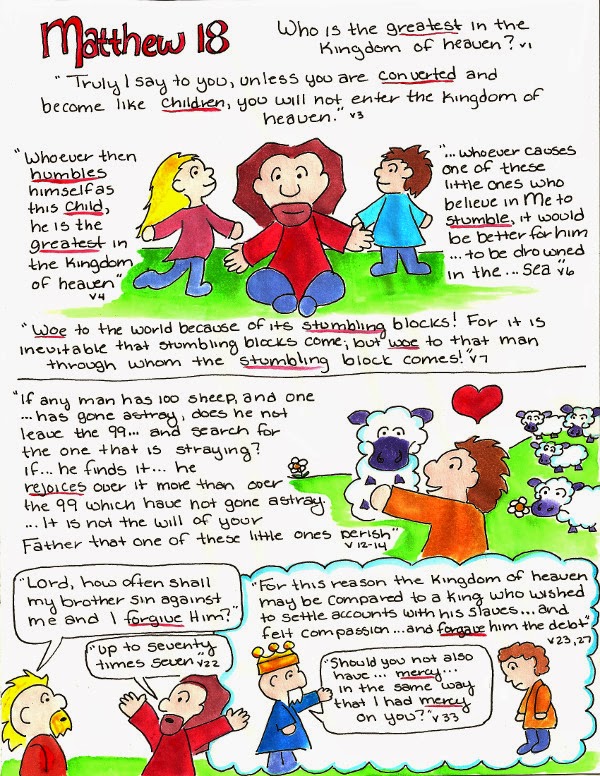 Matthew 18
Who is the greatest in the
Kingdom of heaven? v1
"Truly I say to you, unless you are converted and
become like children, you will not enter the kingdom of
heaven." v3
"Whoever then
humbles
himself as
this child,
he is the
greatest in
the kingdom
of heaven"
v4
"... whoever causes
one of these
little ones who
believe in Me to
stumble, it would
be better for him
... to be drowned
in the ... sea" v6
"Woe to the world because of its stumbling blocks! For it is
inevitable that stumbling blocks come; but woe to that man
through whom the stumbling block comes!" v7
"If any man has 100 sheep, and one
... has gone astray, does he not
leave the 99... and search for
the one that is straying?
If... he finds it... he
rejoices over it more than over
the 99 which have not gone astray
... It is not the will of your
Father that one of these little ones perish"
v 12-14
"Lord, how often shall
my brother sin against
me and I forgive Him?"
"up to seventy
times seven" v22
"For this reason the Kingdom of heaven
may be compared to a King who wished
to settle accounts with his slaves... and
felt compassion... and forgave him the debt"
v23,27
"Should you not also
have ... mercy...
in the same way
that I had mercy
on you?" v33